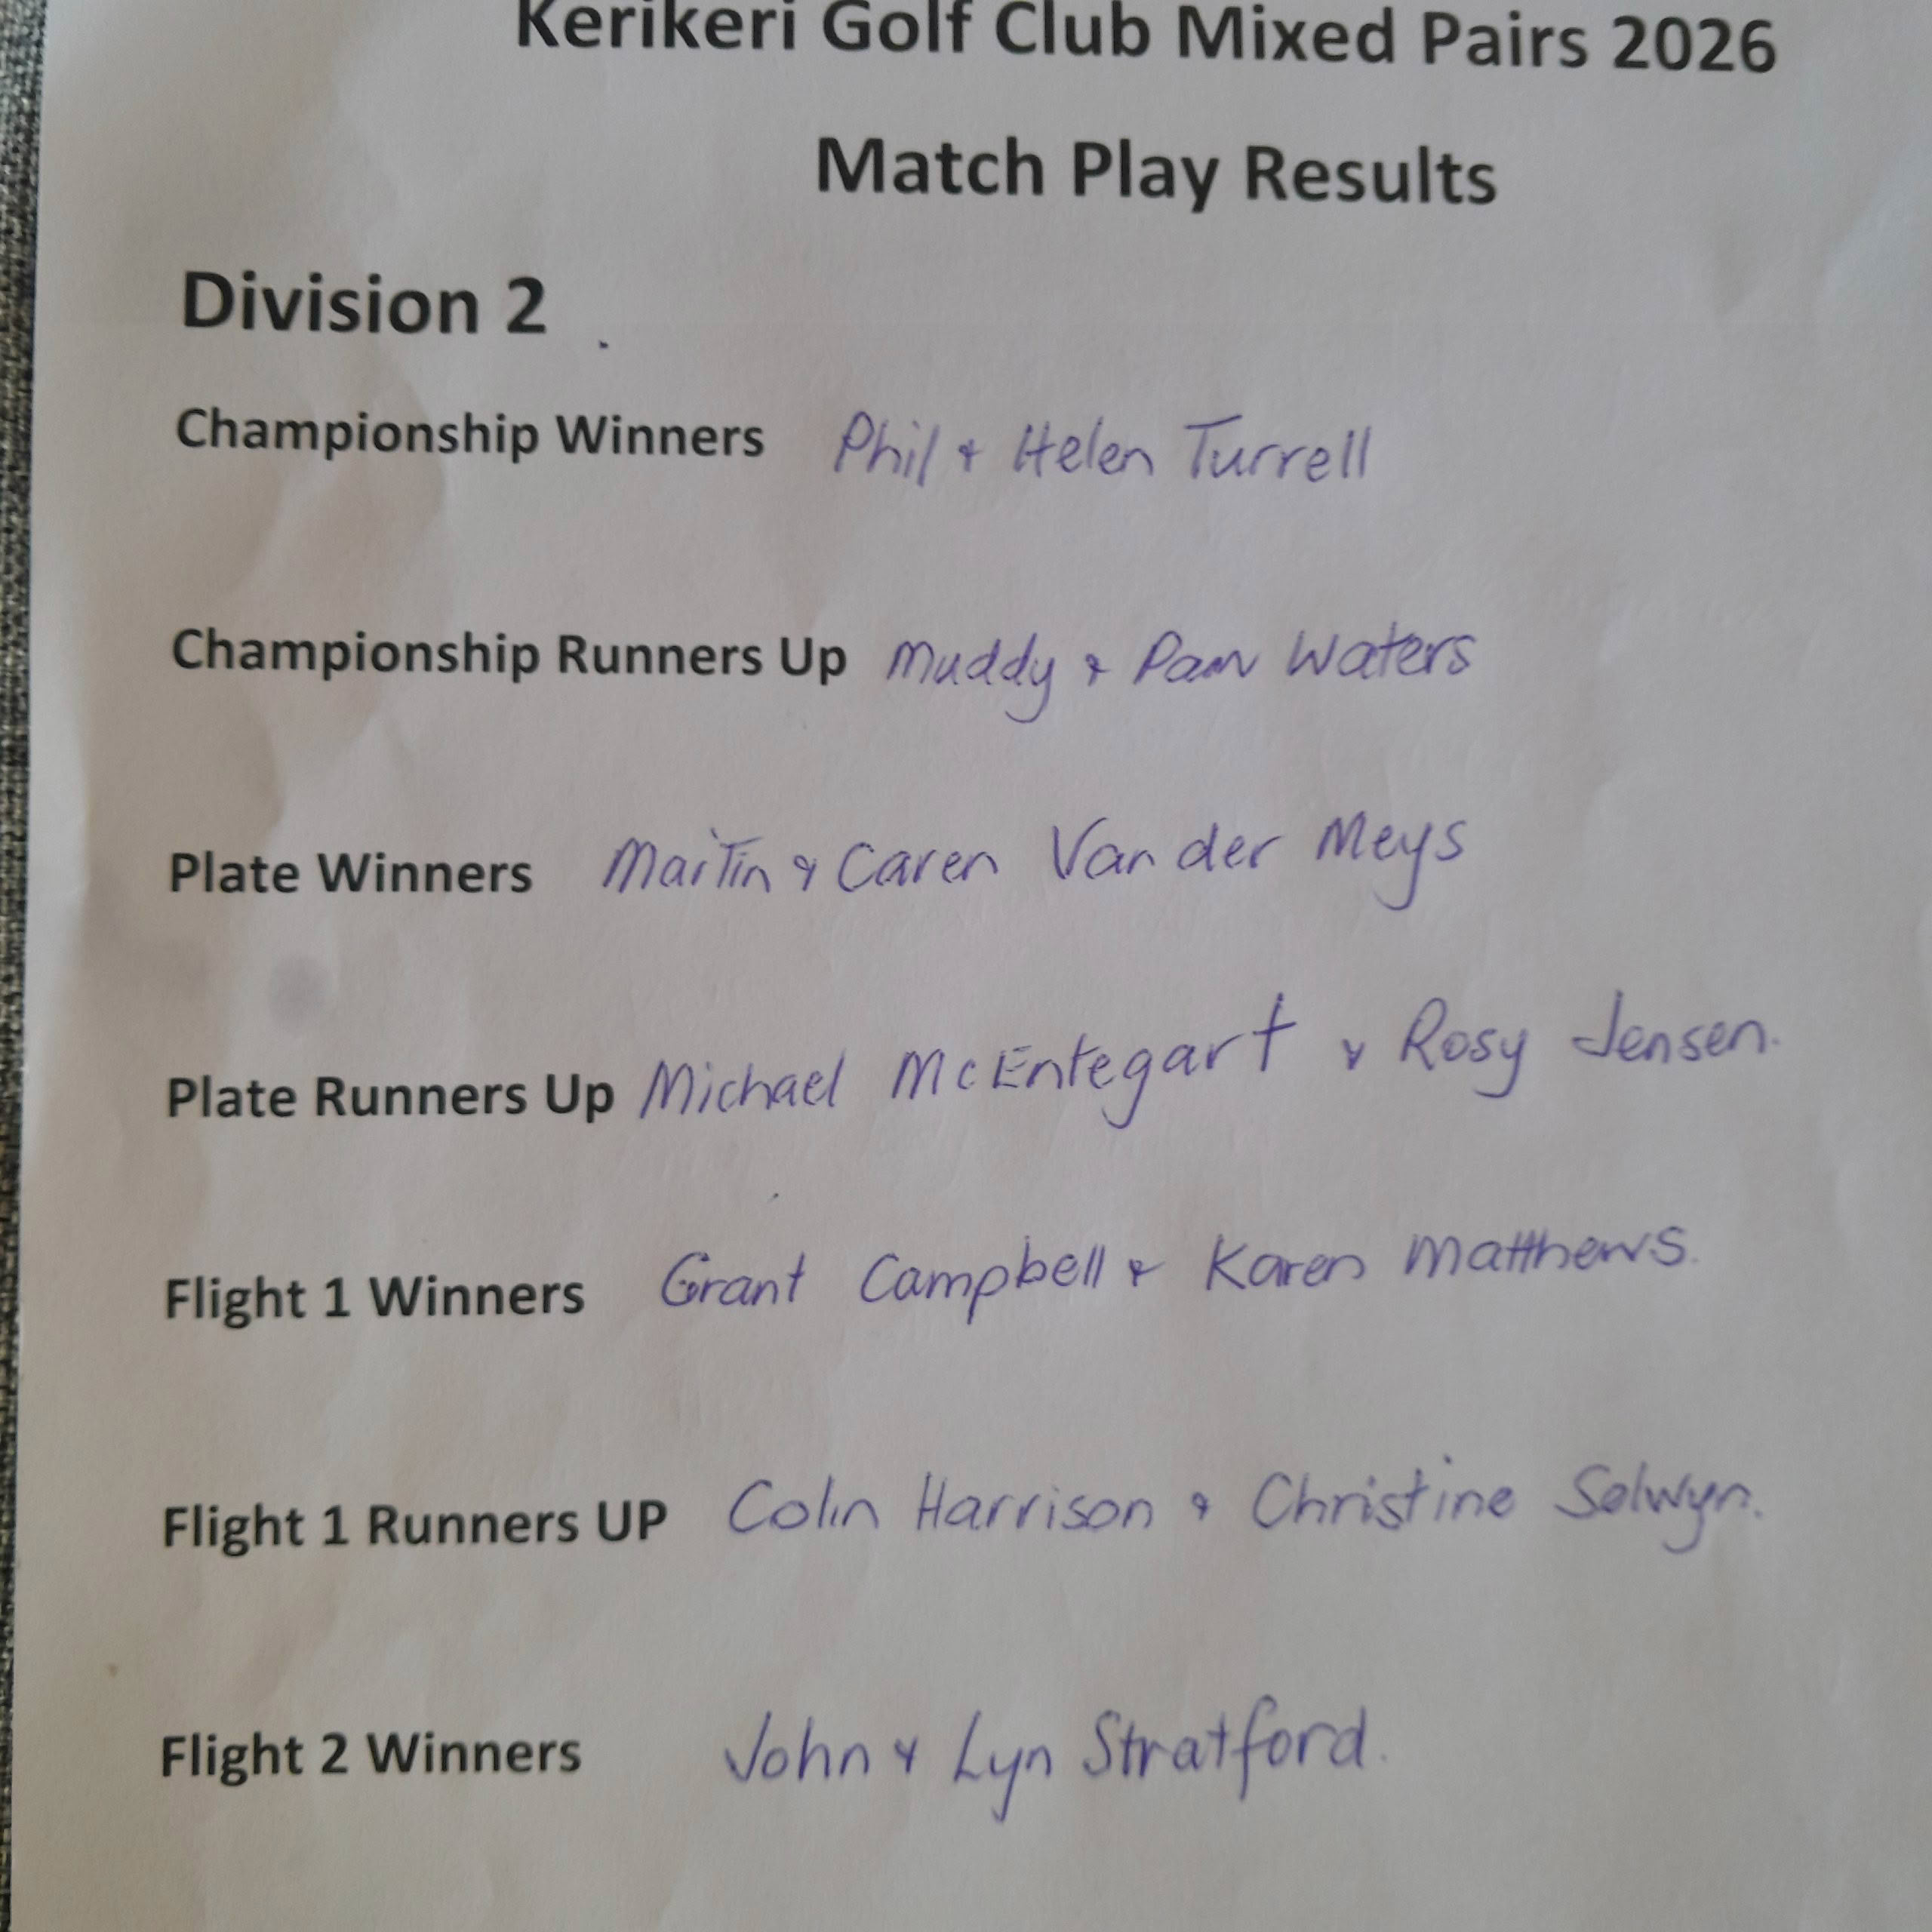 Kerikeri Golf Club Mixed Pairs 2026
Match Play Results
Division 2
Championship Winners Phil & Helen Turrell
Championship Runners Up Muddy & Pam Waters
Plate Winners Martin & Caren Van der Meys
Plate Runners Up Michael McEntegart & Rosy Jensen.
Flight 1 Winners Grant Campbell & Karen Matthews.
Flight 1 Runners UP Colin Harrison & Christine Selwyn.
Flight 2 Winners John & Lyn Stratford.